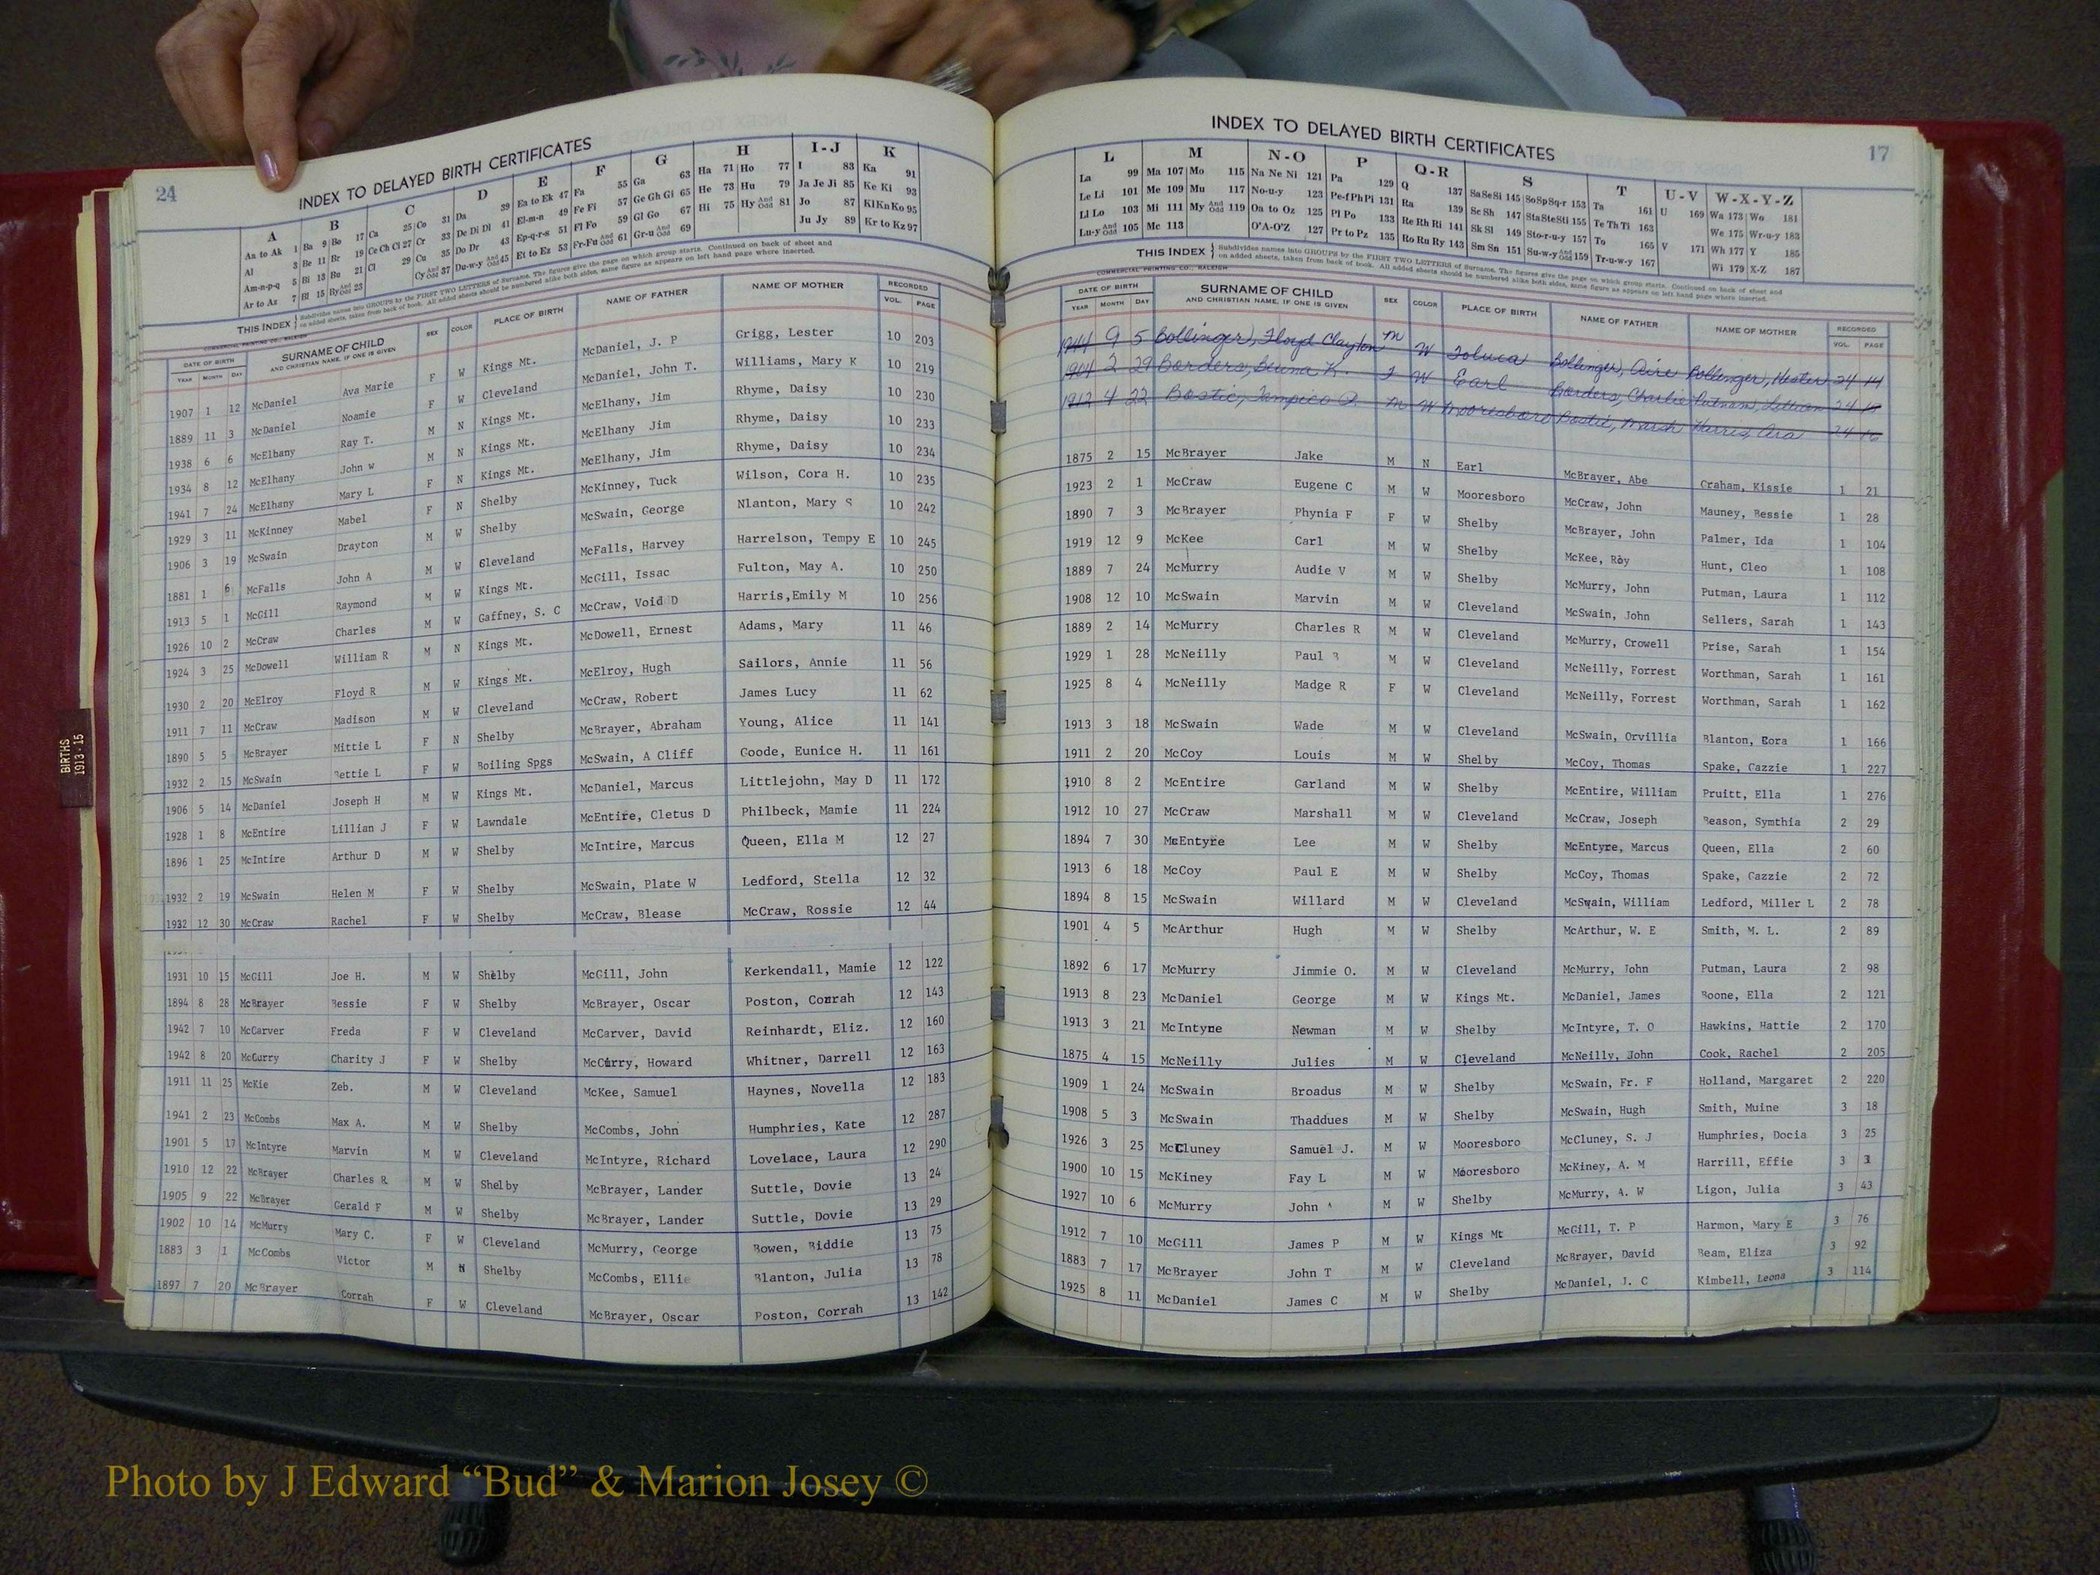 24
INDEX TO DELAYED BIRTH CERTIFICATES
A B C D E F G H I-J K
Aa to Ak 1 Ba 9 Bo 17 Ca 25 Co 31 Da 39 Ea to Ek 47 Fa 55 Ga 63 Ha 71 Ho 77 I 83 Ka 91
Al 3 Be 11 Br 19 Ce Ch Cl 27 Cr 33 De Di Dl 41 El-m-n 49 Fe Fi 57 Ge Gh Gi 65 He 73 Hu 79 Ja Je Ji 85 Ke Ki 93
Am-n-p-q 5 Bi 13 Bu 21 Cl 29 Cu 35 Do Dr 43 Ep-q-r-s 51 Fl Fo 59 Gl Go 67 Hi 75 Hy And Odd 81 Jo 87 Kl Kn Ko 95
Ar to Az 7 Bl 15 By And Odd 23 Cy And Odd 37 Du-w-y And Odd 45 Et to Ez 53 Fr-Fu And Odd 61 Gr-u And Odd 69 Ju Jy 89 Kr to Kz 97
THIS INDEX Subdivides names into GROUPS by the FIRST TWO LETTERS of Surname. The figures give the page on which group starts. Continued on back of sheet and
on added sheets, taken from back of book. All added sheets should be numbered alike both sides, same figure as appears on left hand page where inserted.
COMMERCIAL PRINTING CO., RALEIGH
DATE OF BIRTH SURNAME OF CHILD SEX COLOR PLACE OF BIRTH NAME OF FATHER NAME OF MOTHER RECORDED
YEAR MONTH DAY AND CHRISTIAN NAME, IF ONE IS GIVEN VOL. PAGE
1907 1 12 McDaniel Ava Marie F W Kings Mt. McDaniel, J. P Grigg, Lester 10 203
1889 11 3 McDaniel Noamie F W Cleveland McDaniel, John T. Williams, Mary K 10 219
1938 6 6 McElhany Ray T. M N Kings Mt. McElhany, Jim Rhyme, Daisy 10 230
1934 8 12 McElhany John W M N Kings Mt. McElhany Jim Rhyme, Daisy 10 233
1941 7 24 McElhany Mary L F N Kings Mt. McElhany, Jim Rhyme, Daisy 10 234
1929 3 11 McKinney Mabel F N Shelby McKinney, Tuck Wilson, Cora H. 10 235
1906 3 19 McSwain Drayton M W Shelby McSwain, George Nlanton, Mary S 10 242
1881 1 6 McFalls John A M W Cleveland McFalls, Harvey Harrelson, Tempy E 10 245
1913 5 1 McGill Raymond M W Kings Mt. McGill, Issac Fulton, May A. 10 250
1926 10 2 McCraw Charles M W Gaffney, S. C McCraw, Void D Harris,Emily M 10 256
1924 3 25 McDowell William R M N Kings Mt. McDowell, Ernest Adams, Mary 11 46
1930 2 20 McElroy Floyd R M W Kings Mt. McElroy, Hugh Sailors, Annie 11 56
1911 7 11 McCraw Madison M W Cleveland McCraw, Robert James Lucy 11 62
1890 5 5 McBrayer Mittie L F N Shelby McBrayer, Abraham Young, Alice 11 141
1932 2 15 McSwain Bettie L F W Boiling Spgs McSwain, A Cliff Goode, Eunice H. 11 161
1906 5 14 McDaniel Joseph H M W Kings Mt. McDaniel, Marcus Littlejohn, May D 11 172
1928 1 8 McEntire Lillian J F W Lawndale McEntire, Cletus D Philbeck, Mamie 11 224
1896 1 25 McIntire Arthur D M W Shelby McIntire, Marcus Queen, Ella M 12 27
1932 2 19 McSwain Helen M F W Shelby McSwain, Plate W Ledford, Stella 12 32
1932 12 30 McCraw Rachel F W Shelby McCraw, Blease McCraw, Rossie 12 44
1931 10 15 McGill Joe H. M W Shelby McGill, John Kerkendall, Mamie 12 122
1894 8 28 McBrayer Bessie F W Shelby McBrayer, Oscar Poston, Conrah 12 143
1942 7 10 McCarver Freda F W Cleveland McCarver, David Reinhardt, Eliz. 12 160
1942 8 20 McCurry Charity J F W Shelby McCurry, Howard Whitner, Darrell 12 163
1911 11 25 McKie Zeb. M W Cleveland McKee, Samuel Haynes, Novella 12 183
1941 2 23 McCombs Max A. M W Shelby McCombs, John Humphries, Kate 12 287
1901 5 17 McIntyre Marvin M W Cleveland McIntyre, Richard Lovelace, Laura 12 290
1910 12 22 McBrayer Charles R M W Shelby McBrayer, Lander Suttle, Dovie 13 24
1905 9 22 McBrayer Gerald F M W Shelby McBrayer, Lander Suttle, Dovie 13 29
1902 10 14 McMurry Mary C. F W Cleveland McMurry, George Bowen, Biddie 13 75
1883 3 1 McCombs Victor M N Shelby McCombs, Ellie Blanton, Julia 13 78
1897 7 20 McBrayer Corrah F W Cleveland McBrayer, Oscar Poston, Corrah 13 142
INDEX TO DELAYED BIRTH CERTIFICATES
17
L M N-O P Q-R S T U-V W-X-Y-Z
La 99 Ma 107 Mo 115 Na Ne Ni 121 Pa 129 Q 137 Sa Se Si 145 So Sp Sq-r 153 Ta 161 U 169 Wa 173 Wo 181
Le Li 101 Me 109 Mu 117 No-u-y 123 Pe-f Ph Pi 131 Ra 139 Sc Sh 147 Sta Ste Sti 155 Te Th Ti 163 We 175 Wr-u-y 183
Ll Lo 103 Mi 111 My And Odd 119 Oa to Oz 125 Pl Po 133 Re Rh Ri 141 Sk Sl 149 Sto-r-u-y 157 To 165 V 171 Wh 177 Y 185
Lu-y And Odd 105 Mc 113 O'A-O'Z 127 Pr to Pz 135 Ro Ru Ry 143 Sm Sn 151 Su-w-y And Odd 159 Tr-u-w-y 167 Wi 179 X-Z 187
THIS INDEX Subdivides names into GROUPS by the FIRST TWO LETTERS of Surname. The figures give the page on which group starts. Continued on back of sheet and
on added sheets, taken from back of book. All added sheets should be numbered alike both sides, same figure as appears on left hand page where inserted.
COMMERCIAL PRINTING CO., RALEIGH
DATE OF BIRTH SURNAME OF CHILD SEX COLOR PLACE OF BIRTH NAME OF FATHER NAME OF MOTHER RECORDED
YEAR MONTH DAY AND CHRISTIAN NAME, IF ONE IS GIVEN VOL. PAGE
1944 9 5 Bollinger, Floyd Clayton M W Toluca Bollinger, Aire Bollinger, Hester 24 14
1904 2 29 Borders, K. F W Earl Borders, Charlie Putnam, 24
1912 4 22 Bostic, Tampico D. M W Mooresboro Bostic, Marsh Harris, Ora 24 16
1875 2 15 McBrayer Jake M N Earl McBrayer, Abe Graham, Kissie 1 21
1923 2 1 McCraw Eugene C M W Mooresboro McCraw, John Mauney, Bessie 1 28
1890 7 3 McBrayer Phynia F F W Shelby McBrayer, John Palmer, Ida 1 104
1919 12 9 McKee Carl M W Shelby McKee, Roy Hunt, Cleo 1 108
1889 7 24 McMurry Audie V M W Shelby McMurry, John Putman, Laura 1 112
1908 12 10 McSwain Marvin M W Cleveland McSwain, John Sellers, Sarah 1 143
1889 2 14 McMurry Charles R M W Cleveland McMurry, Crowell Prise, Sarah 1 154
1929 1 28 McNeilly Paul B M W Cleveland McNeilly, Forrest Worthman, Sarah 1 161
1925 8 4 McNeilly Madge R F W Cleveland McNeilly, Forrest Worthman, Sarah 1 162
1913 3 18 McSwain Wade M W Cleveland McSwain, Orvillia Blanton, Eora 1 166
1911 2 20 McCoy Louis M W Shelby McCoy, Thomas Spake, Gazzie 1 227
1910 8 2 McEntire Garland M W Shelby McEntire, William Pruitt, Ella 1 276
1912 10 27 McCraw Marshall M W Cleveland McCraw, Joseph Beason, Symthia 2 29
1894 7 30 McEntyre Lee M W Shelby McEntyre, Marcus Queen, Ella 2 60
1913 6 18 McCoy Paul E M W Shelby McCoy, Thomas Spake, Gazzie 2 72
1894 8 15 McSwain Willard M W Cleveland McSwain, William Ledford, Miller L 2 78
1901 4 5 McArthur Hugh M W Shelby McArthur, W. E Smith, M. L. 2 89
1892 6 17 McMurry Jimmie O. M W Cleveland McMurry, John Putman, Laura 2 98
1913 8 23 McDaniel George M W Kings Mt. McDaniel, James Boone, Ella 2 121
1913 3 21 McIntyre Newman M W Shelby McIntyre, T. O Hawkins, Hattie 2 170
1875 4 15 McNeilly Julies M W Cleveland McNeilly, John Cook, Rachel 2 205
1909 1 24 McSwain Broadus M W Shelby McSwain, Fr. F Holland, Margaret 2 220
1908 5 3 McSwain Thaddues M W Shelby McSwain, Hugh Smith, Muine 3 18
1926 3 25 McCluney Samuel J. M W Mooresboro McCluney, S. J Humphries, Docia 3 25
1900 10 15 McKiney Fay L M W Mooresboro McKiney, A. M Harrill, Effie 3
1927 10 6 McMurry John A M W Shelby McMurry, A. W Ligon, Julia 3 43
1912 7 10 McGill James P M W Kings Mt McGill, T. P Harmon, Mary E 3 76
1883 7 17 McBrayer John T M W Cleveland McBrayer, David Beam, Eliza 3 92
1925 8 11 McDaniel James C M W Shelby McDaniel, J. C Kimbell, Leona 3 114
BIRTHS
1913-15
Photo by J Edward “Bud” & Marion Josey ©